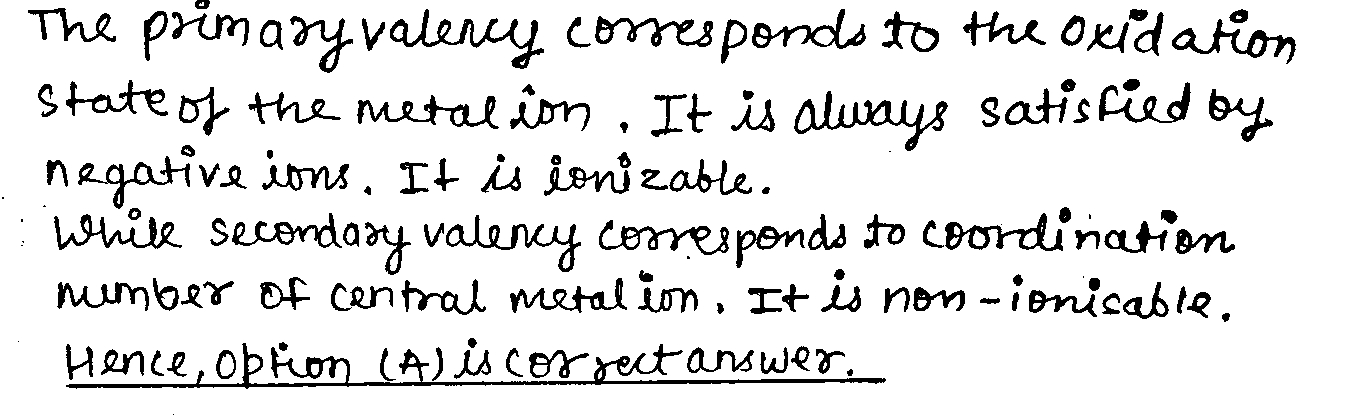 The primary valency corresponds to the oxidation
state of the metal ion. It is always satisfied by
negative ions. It is ionizable.
While secondary valency corresponds to coordination
number of central metal ion. It is non-ionisable.
Hence, option (A) is correct answer.